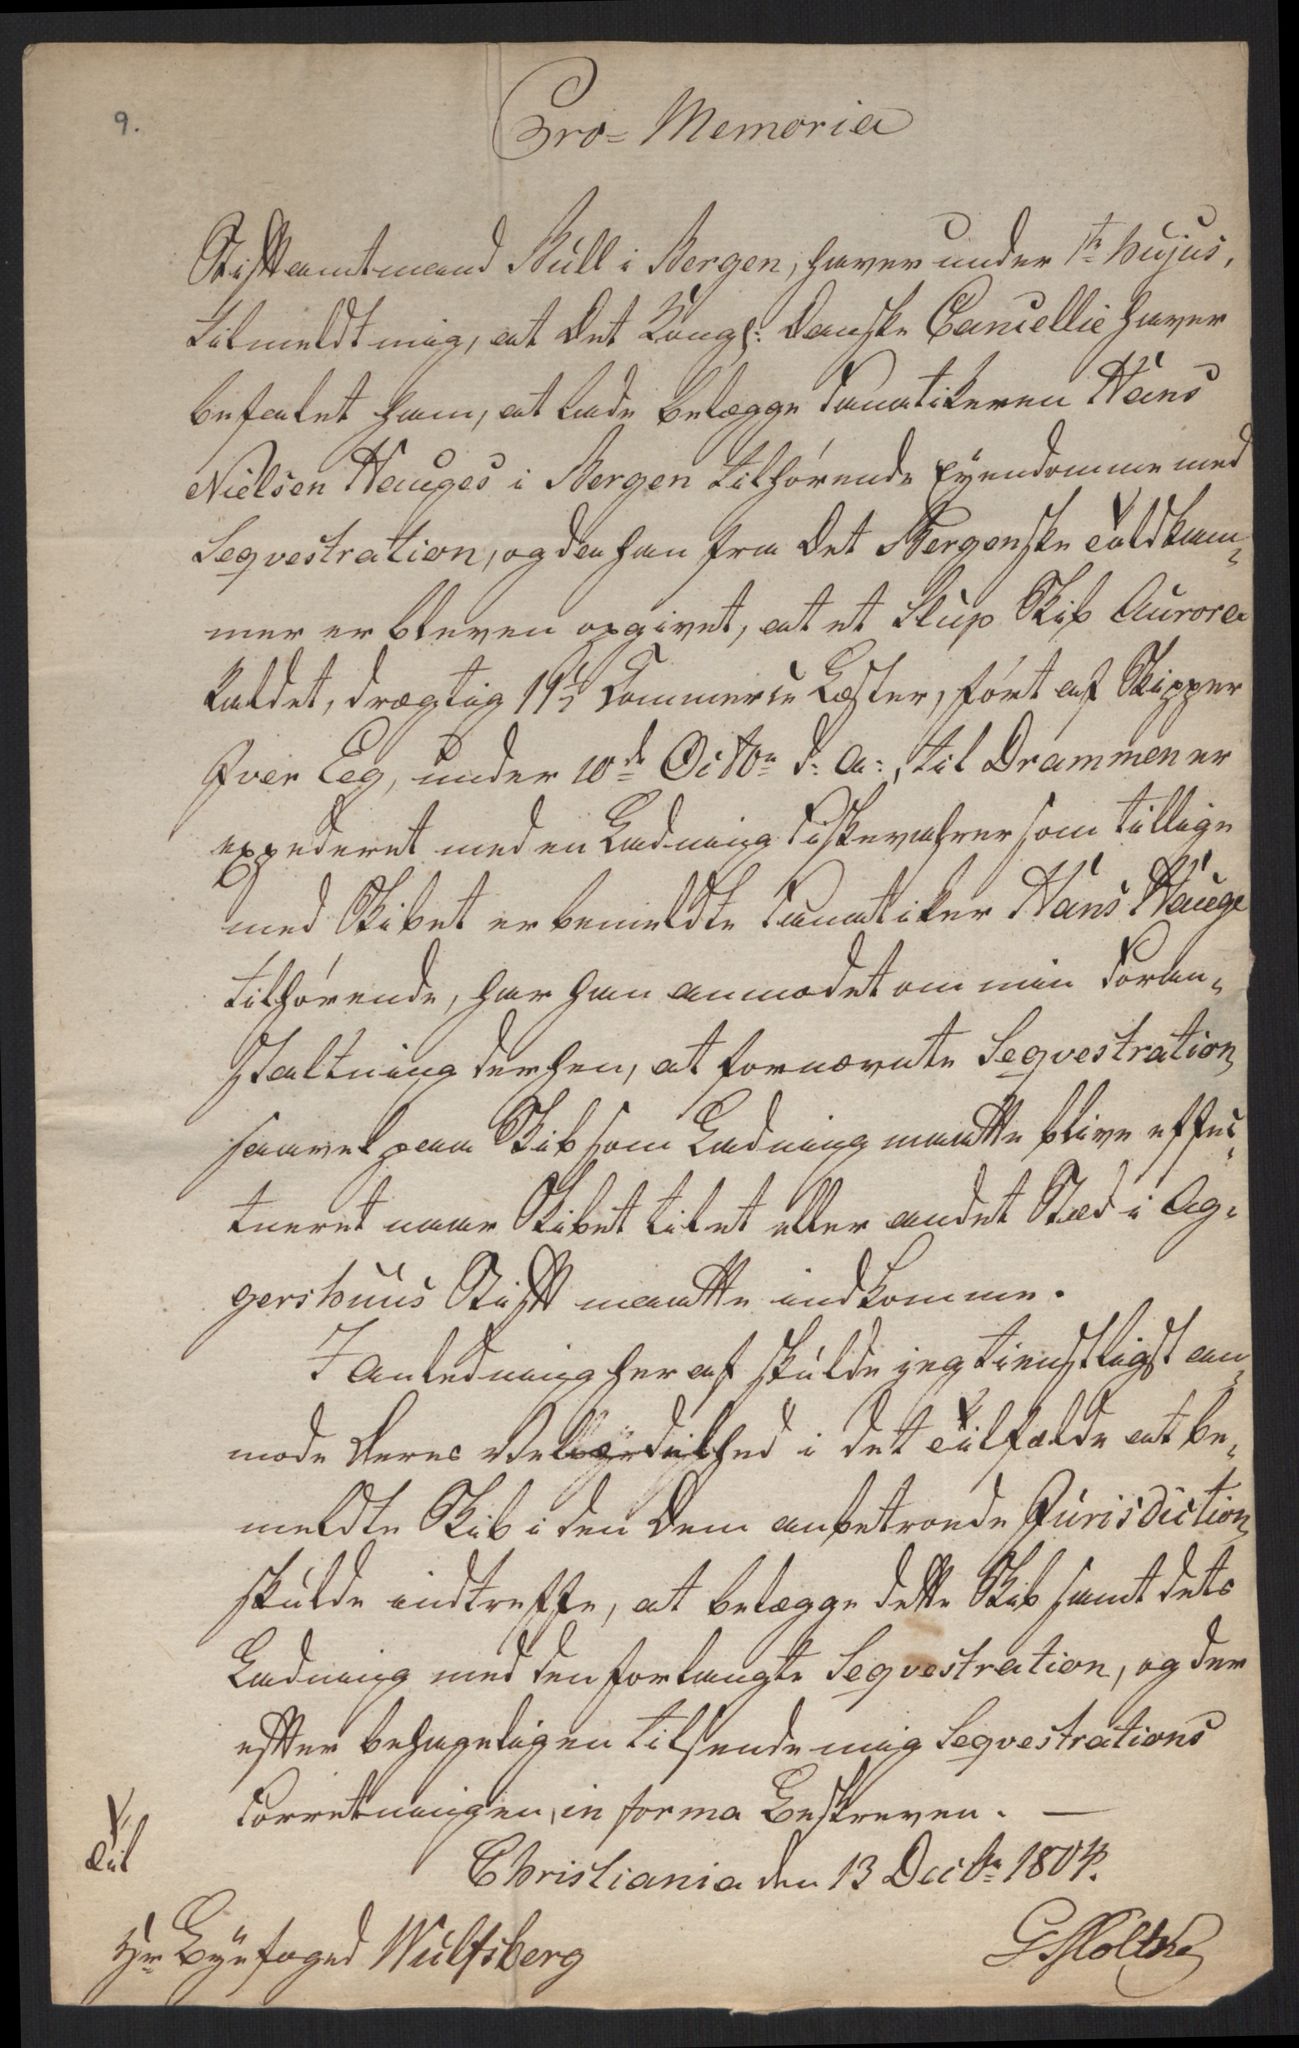 9.
Pro- Memoria
Stiftamtmand Bull i Bergen, haver under 1te hujus,
tilmeldt mig, at det Kongl: Danske Cancellie haver
befalet ham, at lade belægge Fanatikeren Hans
Nielsen Hauges i Bergen tilhørende Eyendomme med
Seqvestration, og da han fra det Bergenske Toldkam-
mer er bleven opgivet, at et Slup Skib Aurora
kaldet, drægtig 19½ Commerce Læster, ført af Skipper
Iver Eeg, under 10de Octbr d: A:, til Drammen er
expederet med en Ladning Fiskevahrer som tillige
med Skibet er bemeldte Fanatiker Hans Hauge
tilhørende, har han anmodet om min Foran-
staltning derhen, at fornævnte Seqvestration
saavel paa Skib som Ladning maatte blive effec-
tueret naar Skibet til et eller andet Stæd i Ag-
gershuus Stift maatte indkomme.
I anledning heraf skulde jeg tienstligst an-
mode Deres i det Tilfælde at be-
meldte Skib i den Dem anbetroede Jurisdiction
skulde indtreffe, at belægge dette Skib samt dets
Ladning med den forlangte Seqvestration, og der
efter behageligen tilsende mig Seqvestrations
Forretningen, in forma beskreven. —
Christiania den 13 Decbr 1804.
Til
Hr Byefoged Wulfsberg
G Moltke